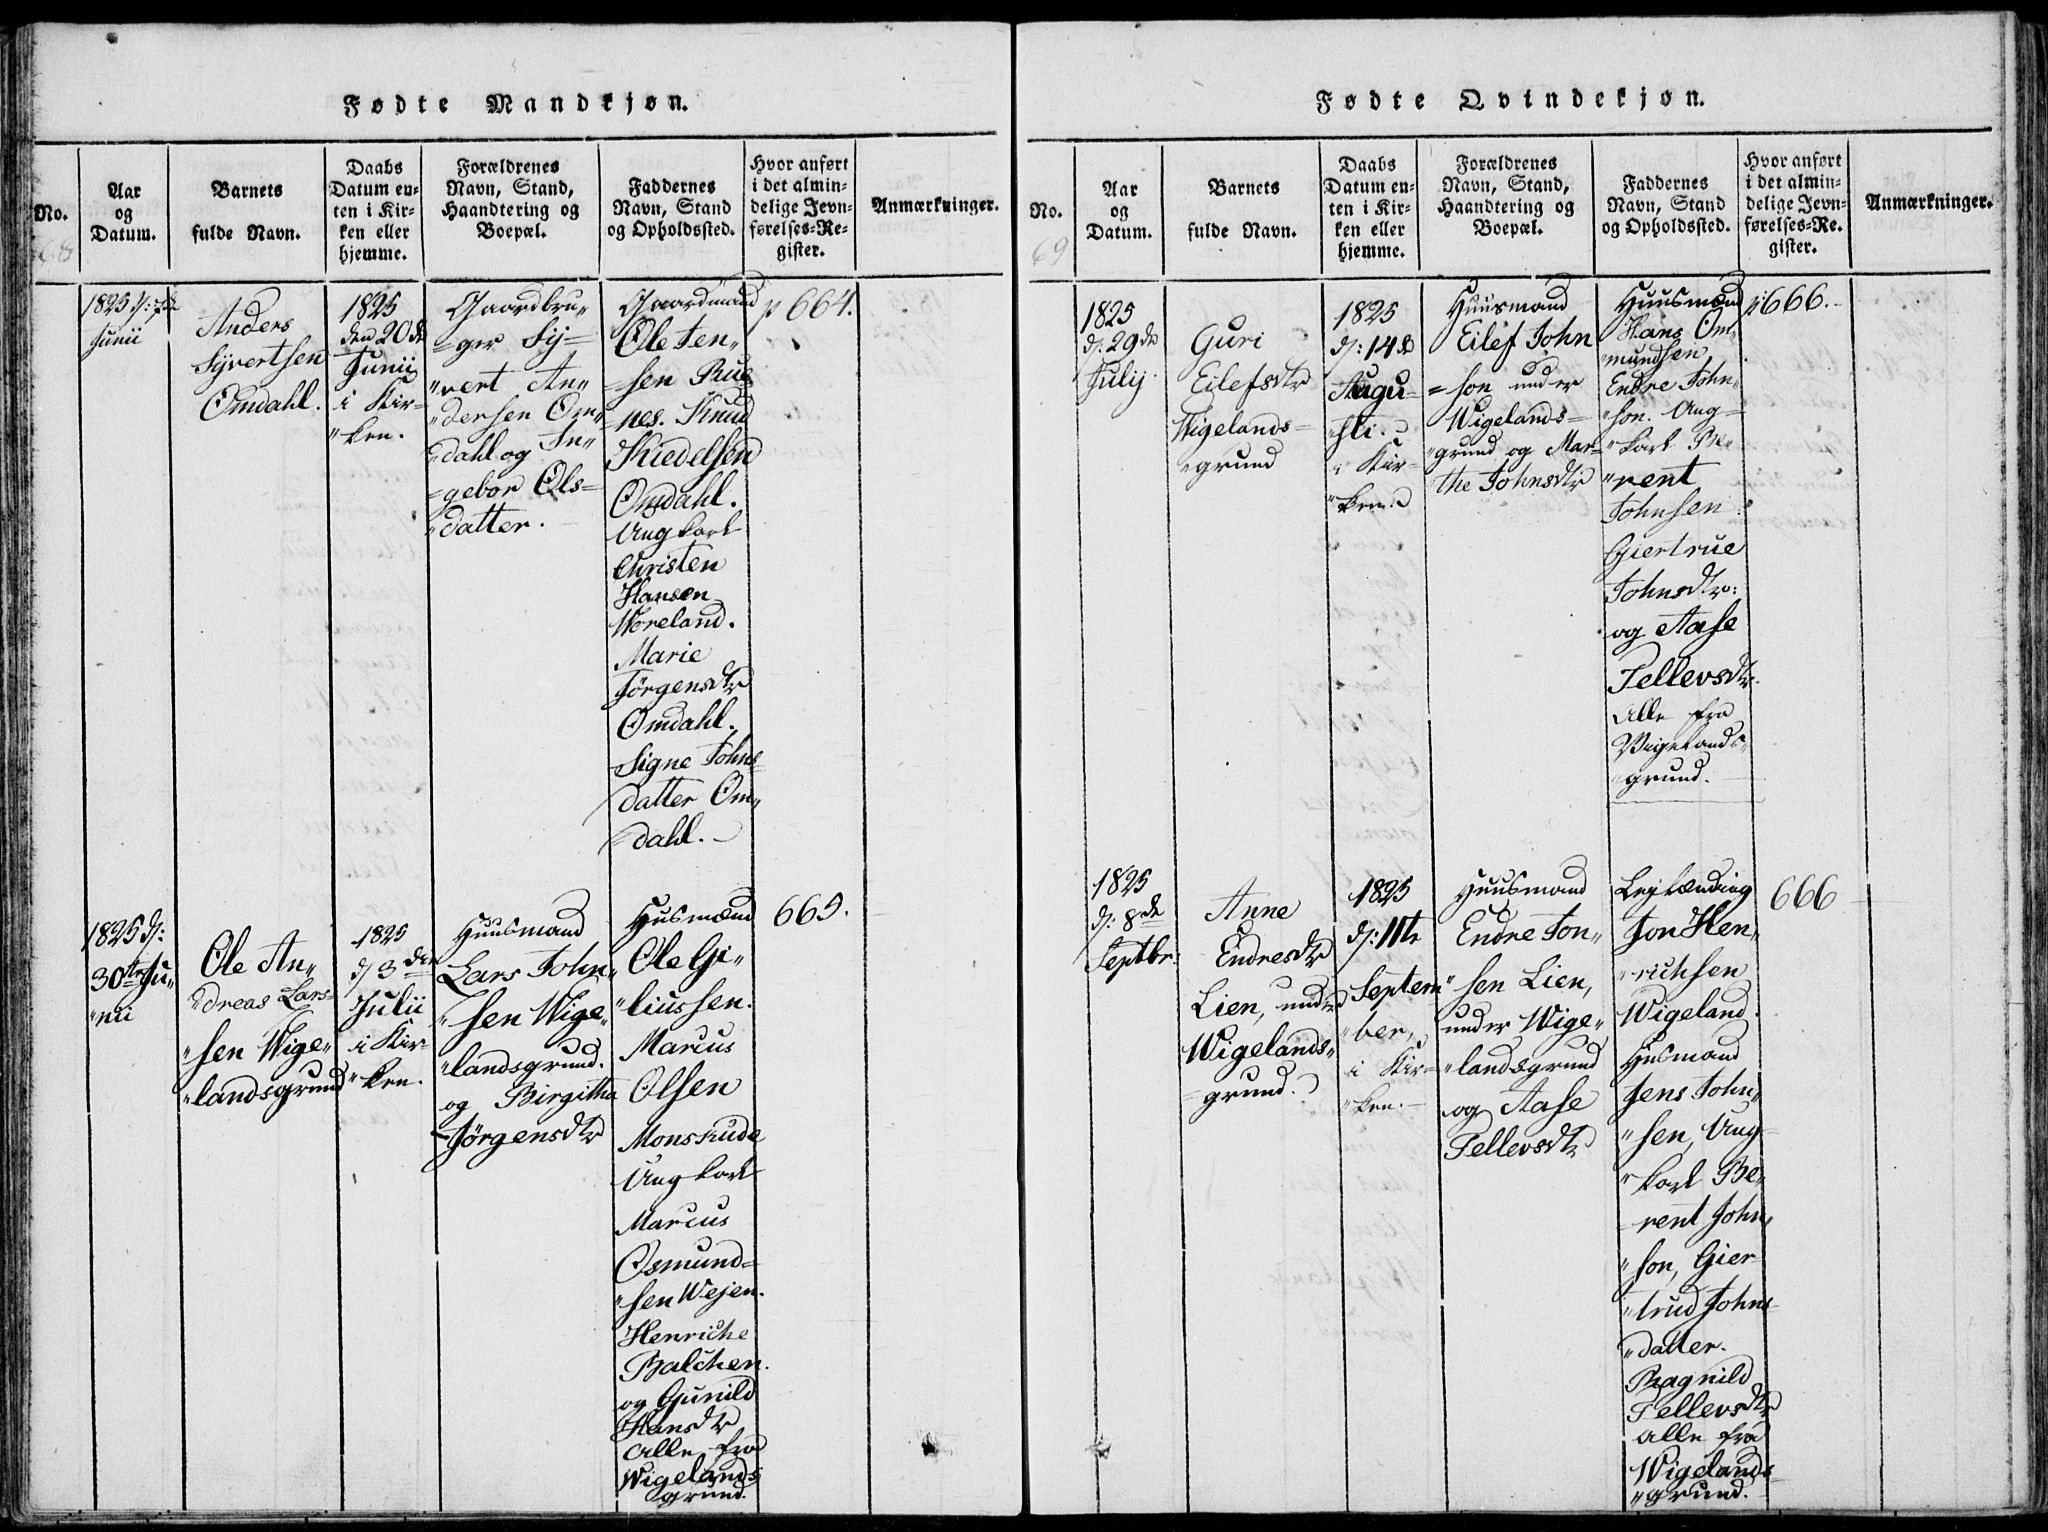 Fødte Mandkjøn.
No.
Aar
og
Datum.
Barnets
fulde Navn.
Daabs
Datum en-
ten i Kir-
ken eller
hjemme.
Forældrenes
Navn, Stand,
Haandtering og
Boepæl.
Faddernes
Navn, Stand
og Opholdssted.
Hvor anført
i det almin-
delige Jevn-
førelses-Re-
gister.
Anmærkninger.
68
1825 d: 7de
Junii
Anders
Syvertsen
Omdahl.
1825
den 20de
Junii
i Kir-
"ken.
Gaardbru-
=ger Sy=
"vert An"
"dersen Om"
"dahl og In"
=gebor Ols=
"datter.
Gaardmand
Ole Jen"
=sen Rug
=nes. Knud
Kiedelsen
Omdahl.
Ungkarl
Christen
Hansen
Woreland.
Marie
Jörgensdtr
Omdahl.
Signe Johns=
datter Om"
=dahl.
p 664.
1825 d:
30te Ju"
"nii
Ole An"
"dreas Lars=
"sen Wige"
"landsgrund
1825
d 3den
Julii
i Kir-
"ken.
Huusmand
Lars John"
"sen Wige"
"landsgrund.
og Birgitha
Jörgensdtr
Husmænd
Ole Gi"
"liussen.
Marcus
Olsen
Monskude
Ungkarl
Marcus
Osmund=
"sen Wejen.
Henriche
Balchen.
og Gunild
Hansdtr
Alle fra
Wigelands
grund.
665.
Fødte Qvindekjøn.
No.
Aar
og
Datum.
Barnets
fulde Navn.
Daabs
Datum en-
ten i Kir-
ken eller
hjemme.
Forældrenes
Navn, Stand,
Haandtering og
Boepæl.
Faddernes
Navn, Stand
og Opholdssted.
Hvor anført
i det almin-
delige Jevn-
førelses-Re-
gister.
Anmærkninger.
69
1825
d: 29de
Julij
Guri
Eilefsdtr
Wigelands=
"grund
1825
d: 14de
Augu-
"sti.
i Kir-
"ken.
Huusmand
Eilef John
=son under
Wigelands=
"grund og Mar=
the Johnsdtr
Huusmænd
Hans Om"
"mundsen,
Endre John"
"son. Ung=
"karl Be"
"rent
Johnsen
Giertrue
Johnsdtr:
og Aase
Tellevsdtr.
Alle fra
Wigelands"
"grund.
p 666.
1825
d: 8de
Septbr:
Anne
Endresdtr
Lien, under
Wigelands"
=grund.
1825
d: 11te
Septem"
"ber,
i Kir=
"ken.
Huusmand
Endre Jon"
"sen Lien,
under Wige"
"landsgrund
og Aase
Tellevsdtr
Lejlænding
Jon Hen"
"richsen
Wigeland.
Husmand
Jens John"
"sen, Ung=
"karl Be"
rent John"
"son, Gier-
"trud Johns-
"datter.
Ragnild
Tellevsdtr
alle fra
Wigelands-
"grund.
666